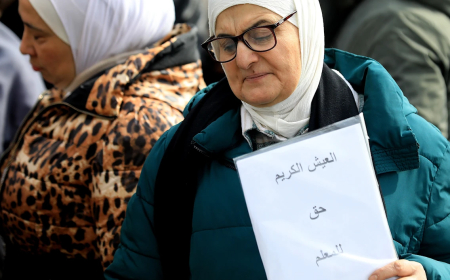 العيش الكريم
حق
للمعلم